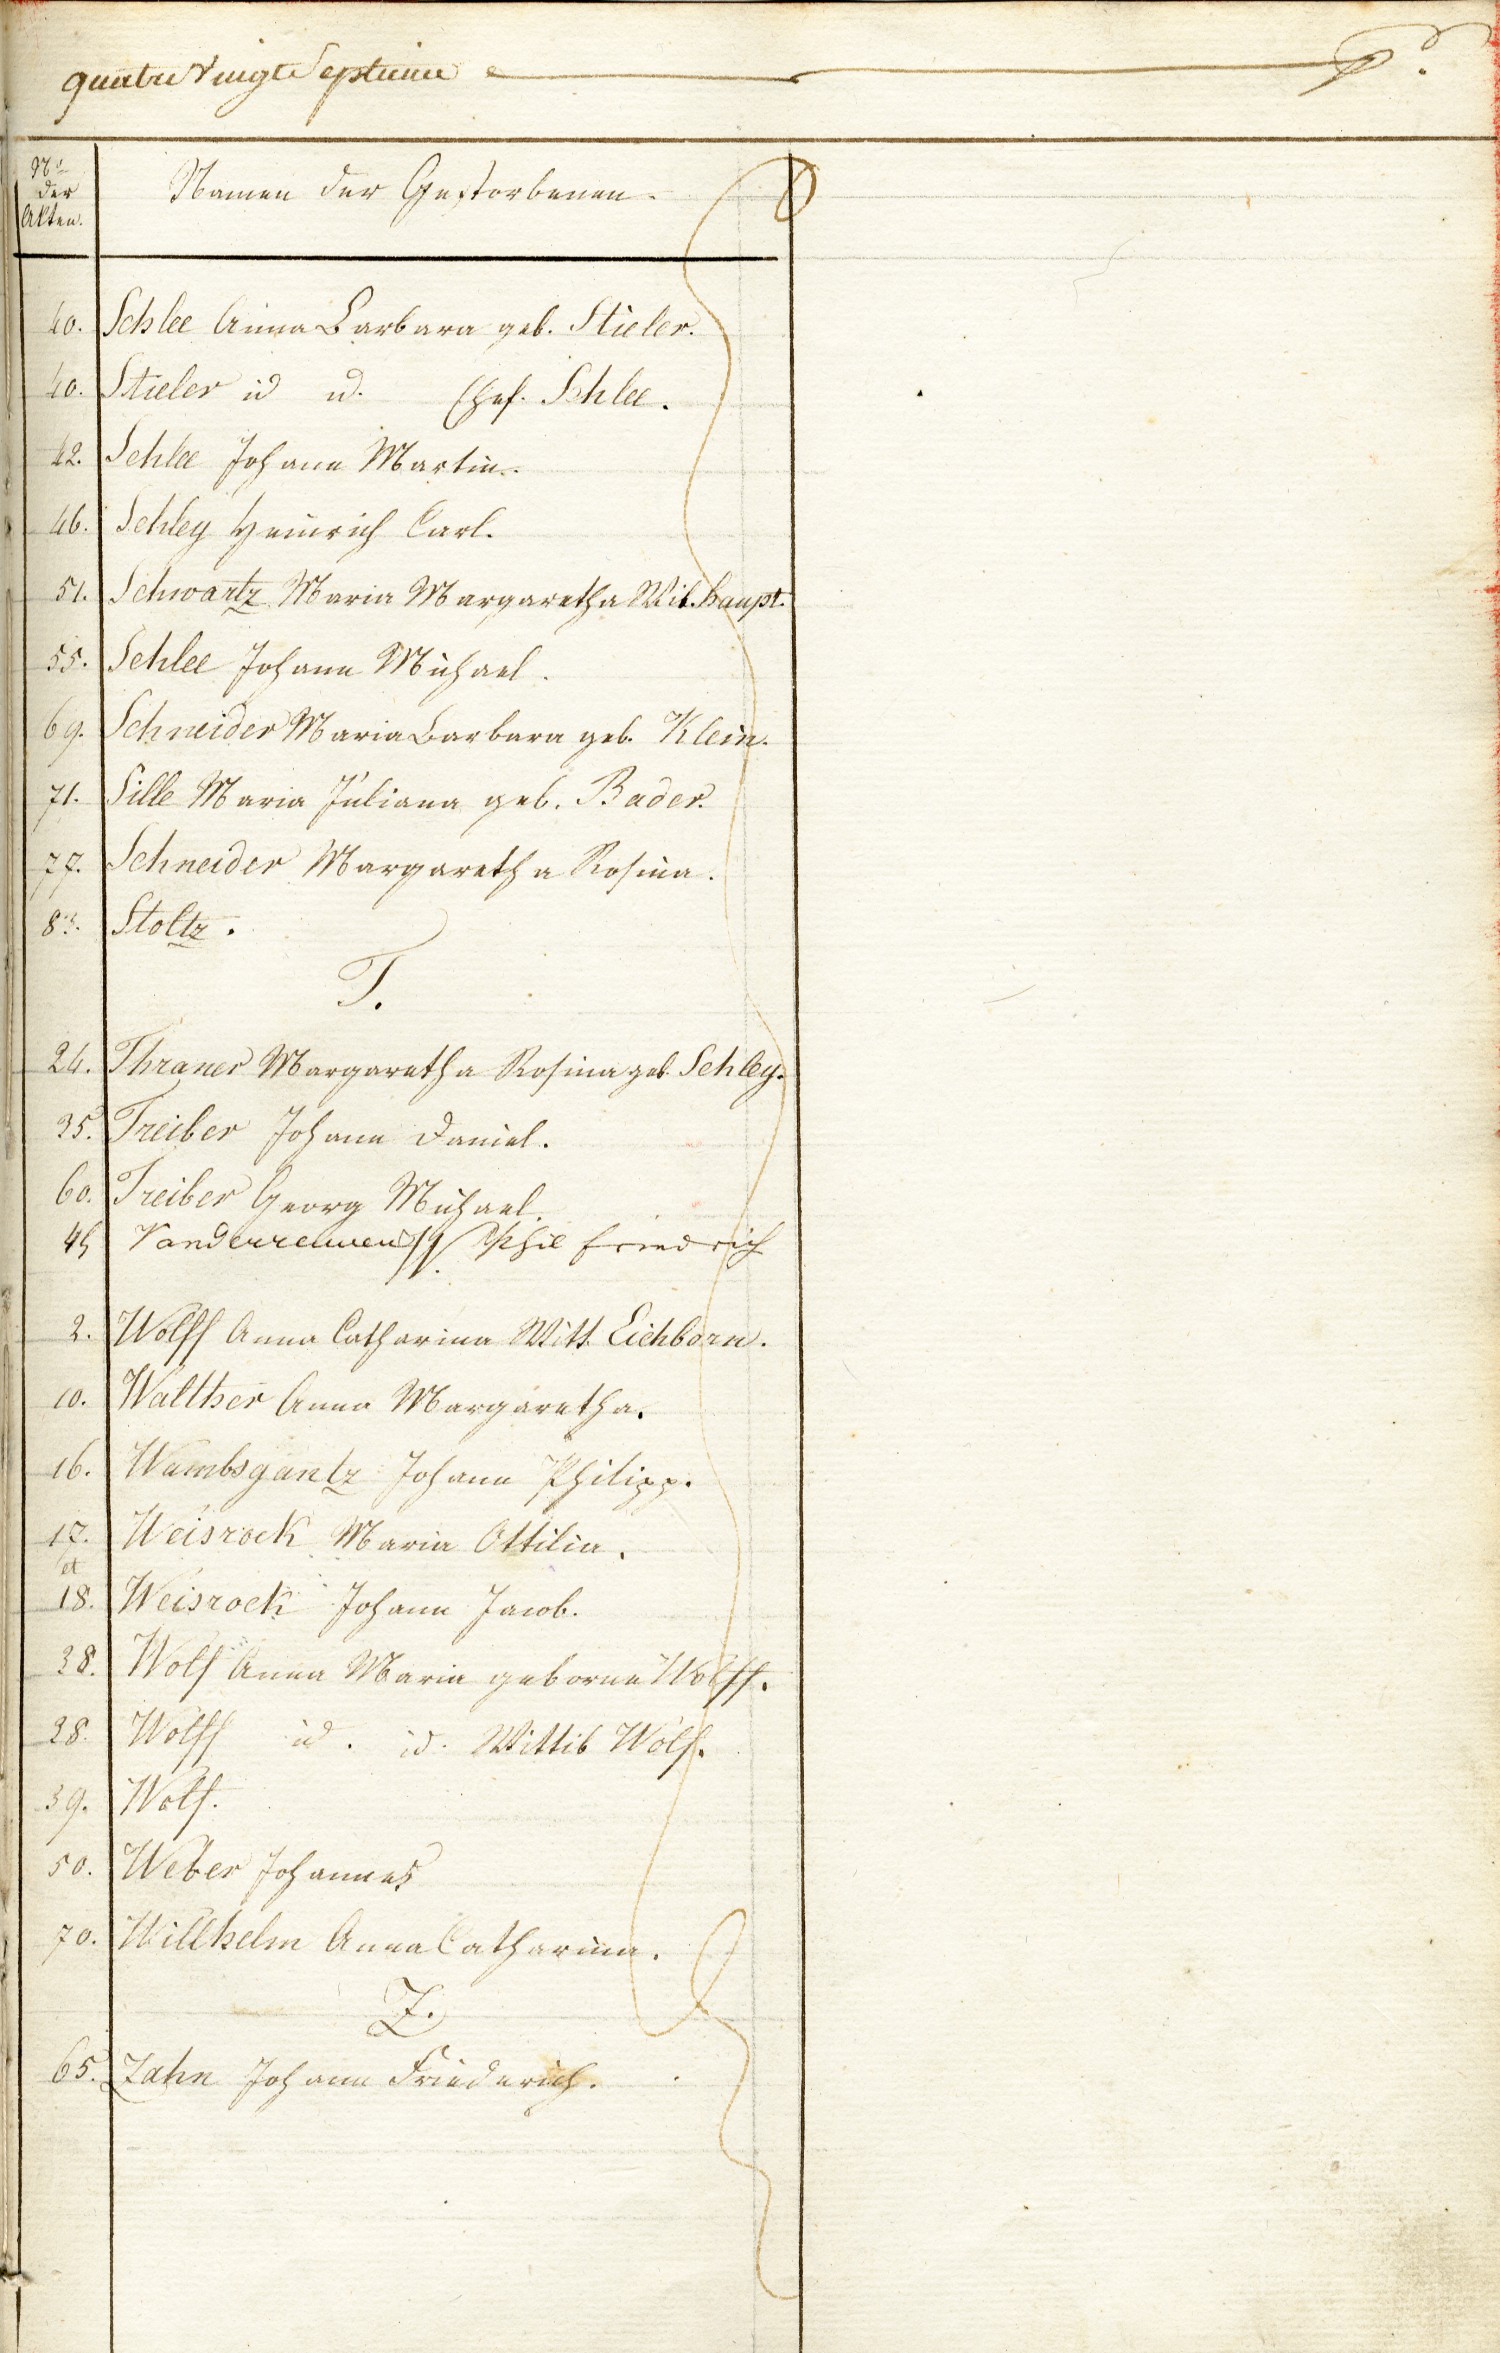 quatre Vingt Septieme
No
der
Akten.
Namen der Gestorbenen.
40. Schlee Anna Barbara geb. Stieler.
40. Stieler id id. Ehef. Schlee.
42. Schlee Johann Martin.
46. Schley Heinrich Carl.
51. Schwartz Maria Margaretha Wit. Haupt.
55. Schlee Johann Michael.
69. Schneider Maria Barbara geb. Klein.
71. Sille Maria Juliana geb. Bader.
77. Schneider Margaretha Rosina.
83. Stoltz.
T.
24. Thraner Margaretha Rosina geb. Schley.
35. Treiber Johann Daniel.
60. Treiber Georg Michael.
45 Phil Friedrich
2. Wolff Anna Catharina Witt. Eichborn.
10. Walther Anna Margaretha.
16. Wambsgantz Johann Philipp.
17. Weisrock Maria Ottilia.
et
18. Weisrock Johann Jacob.
38. Wolf Anna Maria geborne Wolff.
38. Wolff id. id. Wittib Wolf.
39. Wolf.
50. Weber Johannes
70. Willhelm Anna Catharina.
Z.
65. Zahn Johann Friederich.